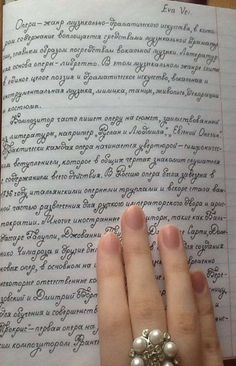 Eva Ve.
Опера – жанр музыкально-драматического искусства, в кото-
ром содержание воплощается средствами музыкальной драматур-
гии, главным образом посредством вокальной музыки. Литератур-
ная основа оперы – либретто. В этом музыкальном жанре слиты
в единое целое поэзия и драматическое искусство, вокальная и
инструментальная музыка, мимика, танцы, живопись, декорации
костюмы.
Композитор часто пишет оперу на сюжет, заимствованный
из литературы, например „Руслан и Людмила", „Евгений Онегин".
Почти каждая опера начинается увертюрой – симфониче-
ским вступлением, которое в общих чертах знакомит слушателя
с содержанием всего действия. В Россию опера была завезена в
1736 году итальянскими оперными труппами и вскоре стала важ-
ной частью развлечений для русского императорского двора и арис-
тократии. Многие иностранные композиторы, такие как Бал-
дассаре Галуппи, Джованни Сарти, Доме-
нико Чимароза и другие для создания
новых опер, в основном на
Некоторые отечественные ком-
зовский и Дмитрий Борт
для обучения и совершенст
Прокрис" – первая опера на
ским композитором Франч